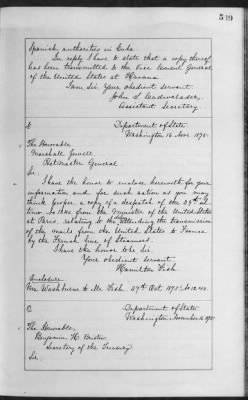 539
Spanish authorities in Cuba
In reply I have to state that a copy thereof
has been transmitted to the Vice Consul General
of the United States at Havana
I am Sir Your obedient servant
John L. Cadwalader,
Assistant Secretary.
Department of State
Washington 16 Nov. 1875.
The Honorable
Marshall Jewell
Postmaster General
Sir.
I have the honor to enclose herewith for your
information and for such action as you may
think proper a copy of a despatch of the 27th ul-
timo No. 1240 from the Minister of the United States
at Paris, relating to the transmission
of the mails from the United States to France
by the French line of Steamers.
I have the honor to be Sir
Your obedient servant.
Hamilton Fish
Enclosure
Mr Washburne to Mr Fish. 27th Oct. 1875. No. 1240.
Department of State
Washington, November 16 1875
The Honorable,
Benjamin H. Bristow,
Secretary of the Treasury
Sir.